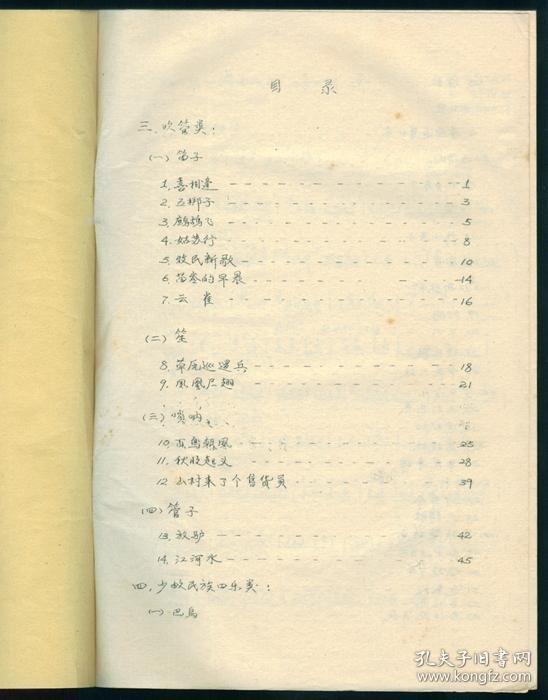 目 录
三、吹管类：
（一）笛子
1、喜相逢 1
2、五梆子 3
3、鹧鸪飞 5
4、姑苏行 8
5、牧民新歌 10
6、苗岭的早晨 14
7、云雀 16
（二）笙
8、草原巡逻兵 18
9、凤凰展翅 21
（三）唢呐
10、百鸟朝凤 25
11、秋收起义 28
12、山村来了个售货员 39
（四）管子
13、放驴 42
14、江河水 45
四、少数民族四乐类：
（一）巴乌
孔夫子旧书网
www.kongfz.com